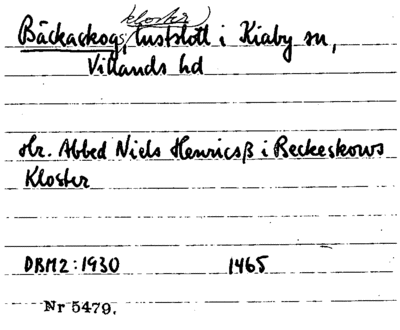 kloster
Bäckaskog, lustslott i Kiaby sn,
Villands hd
Hr. Abbed Niels Henricsß i Beckeskows
Kloster
DBM2:1930 1465
Nr 5479.